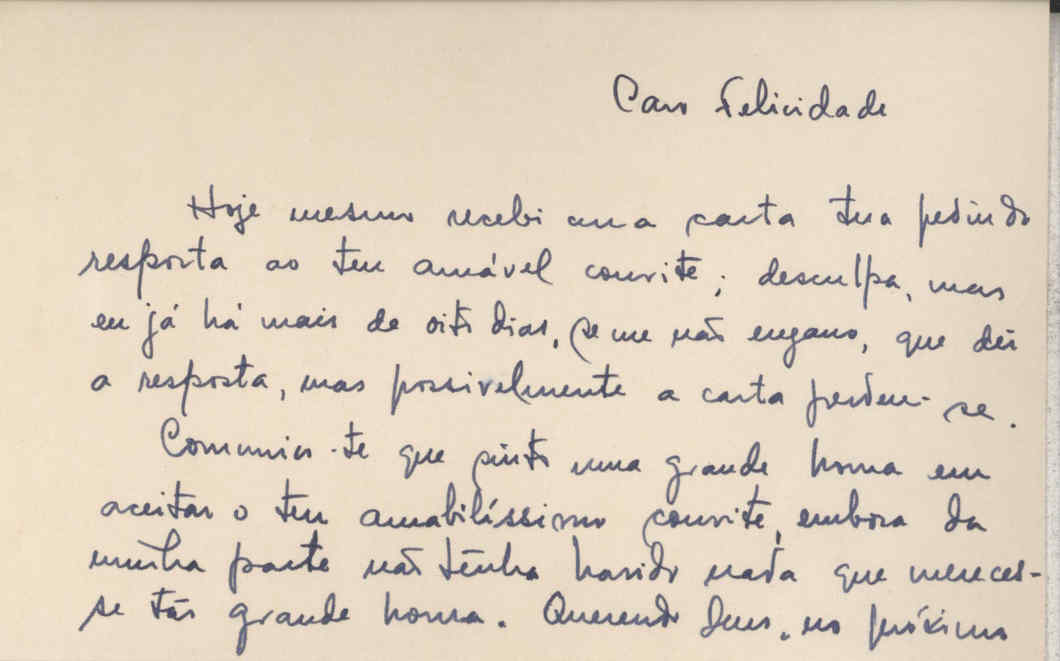 Caro Felicidade
Hoje mesmo recebi uma carta tua pedindo
resposta ao teu amável convite; desculpa, mas
eu já há mais de oito dias, se me não engano, que dei
a resposta, mas possivelmente a carta perdeu-se.
Comunico-te que sinto uma grande honra em
aceitar o teu amabilíssimo convite, embora da
minha parte não tenha havido nada que mereces-
se tão grande honra. Querendo Deus, no próximo